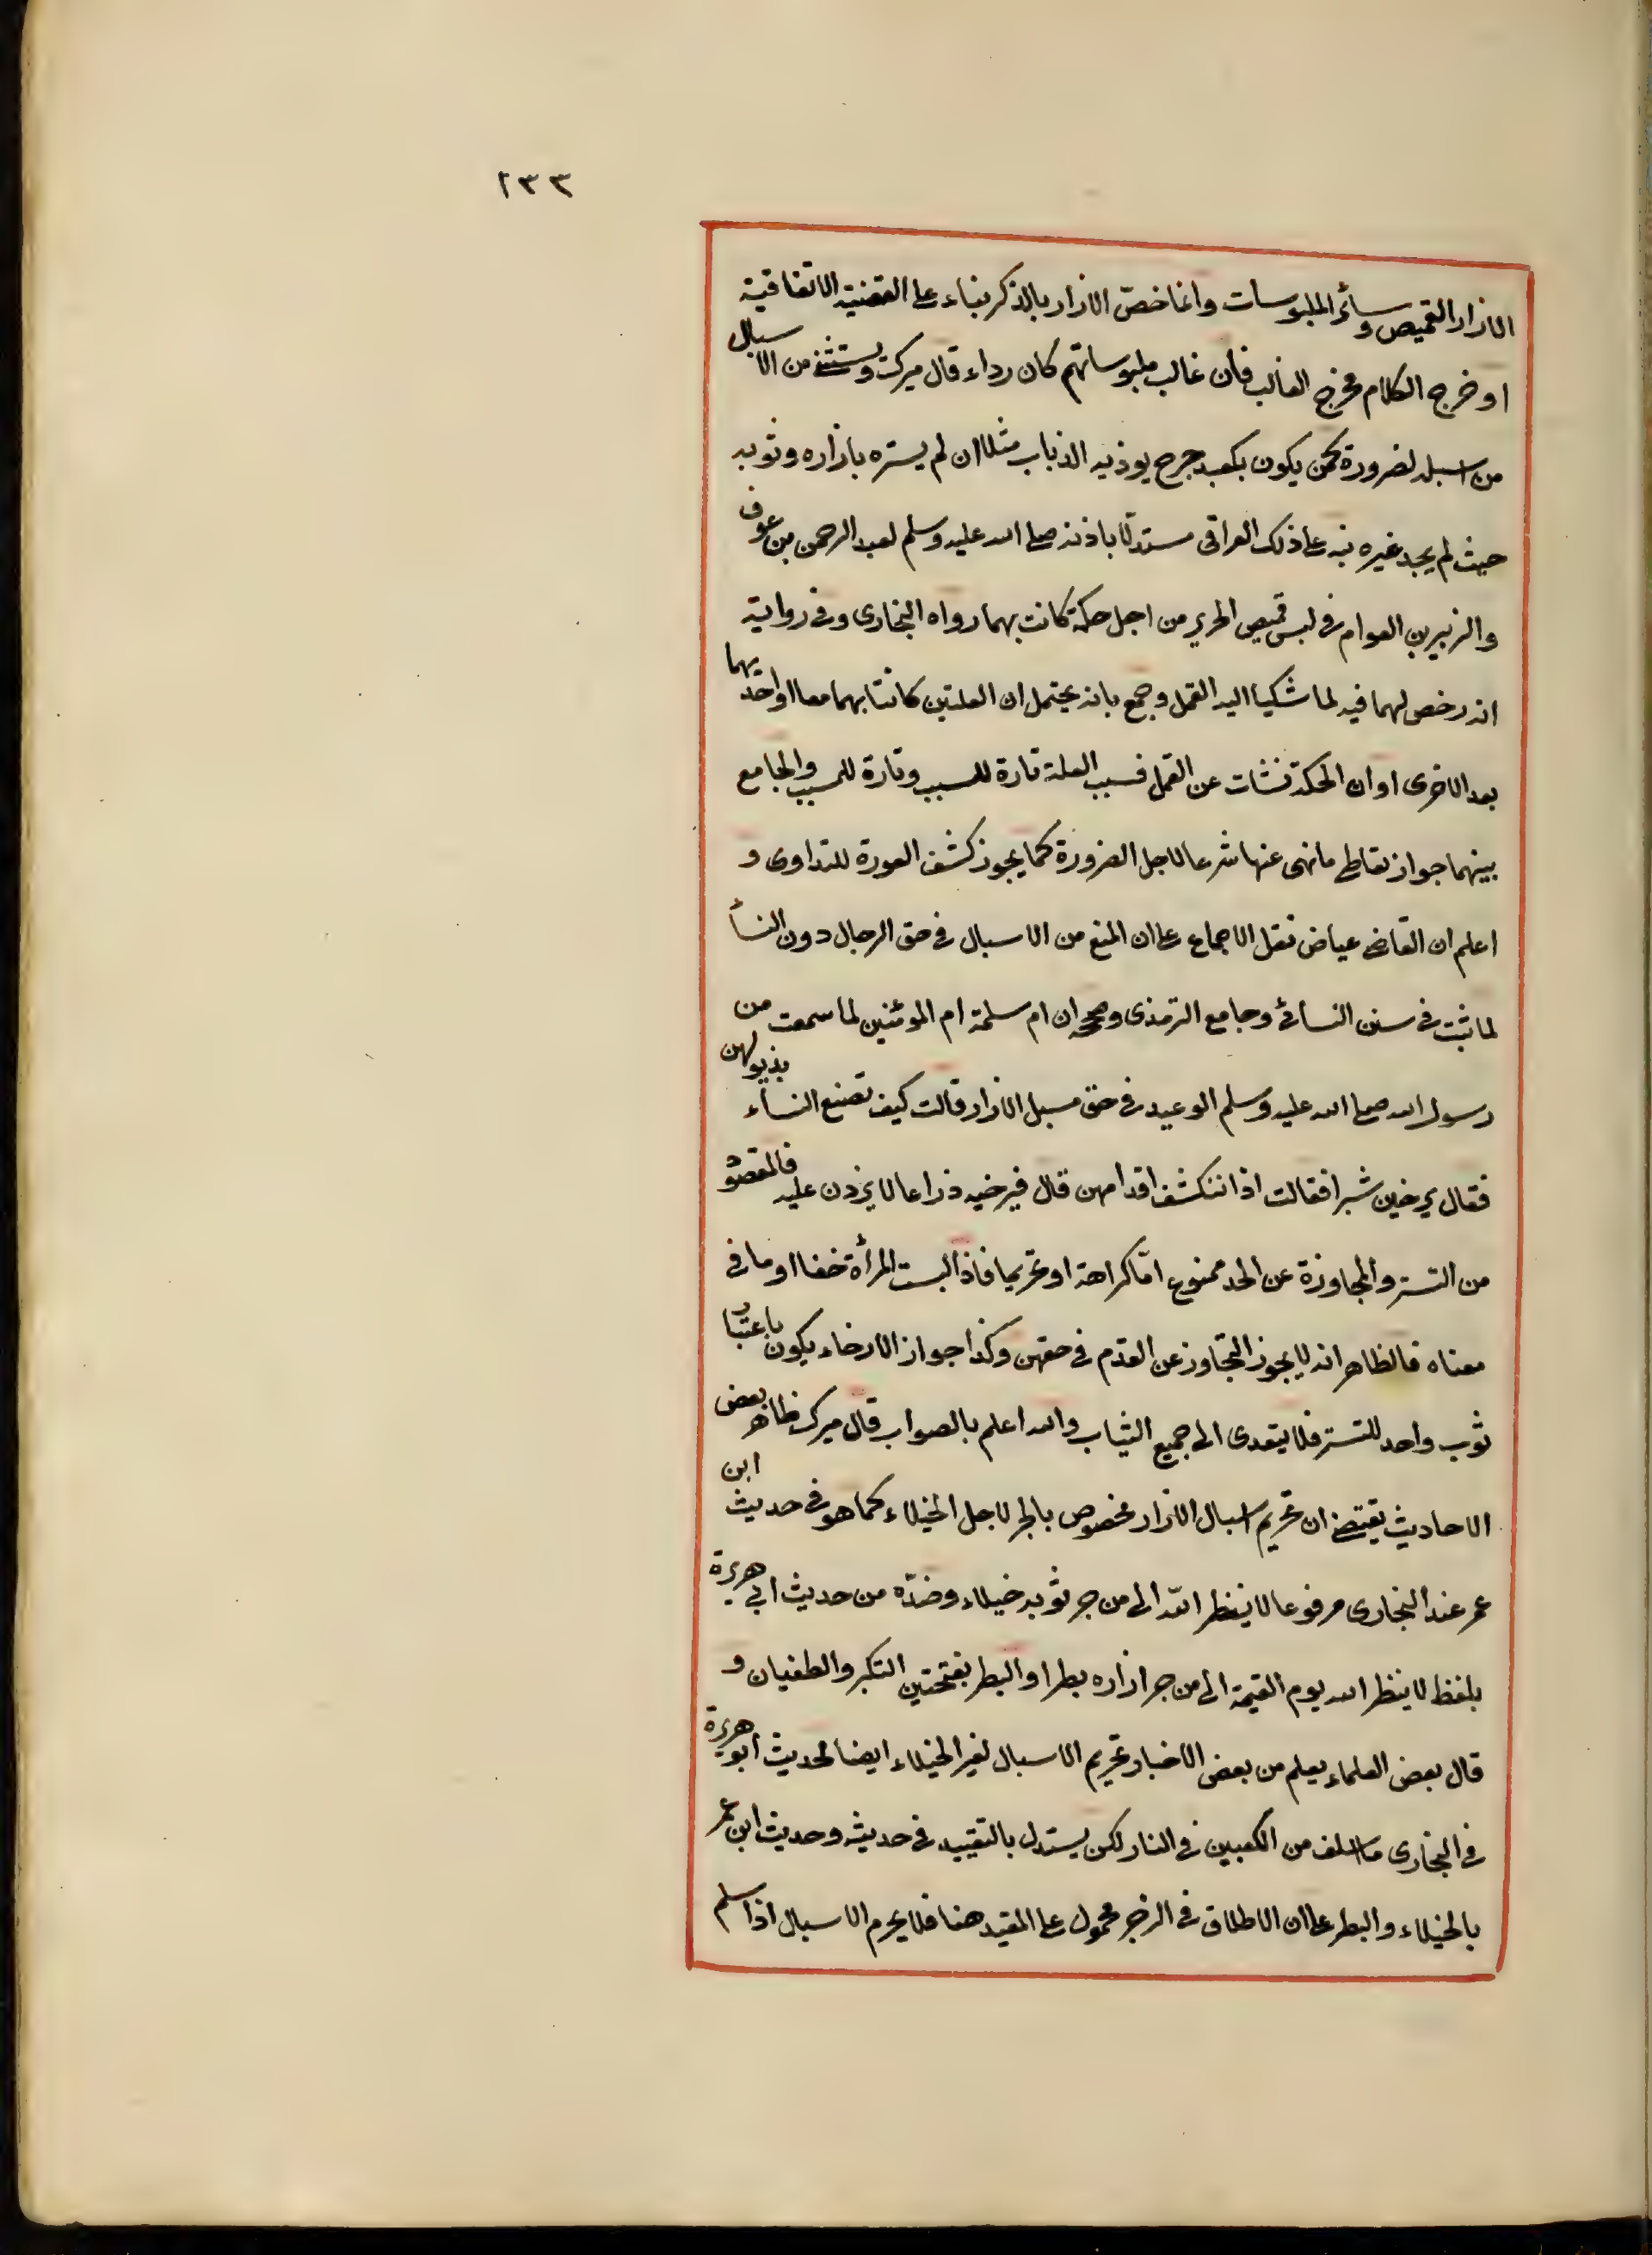 ٢٣٣
الازار القميص وسائر الملبوسات وانما خصّ الازار بالذكر بناء على القضية الاتفاقية
او خرج الكلام مخرج الغالب فان غالب ملبوساتهم كان رداء قال ميرك ويستثنى من الاسبال
من اسبله لضرورة كمن يكون بكعبه جرح يوذيه الذباب مثلا ان لم يستره بازاره وثوبه
حيث لم يجد غيره نبه على ذلك العراقى مستدلّا باذنه صلى الله عليه وسلم لعبد الرحمن بن عوف
والزبير بن العوام فى لبس قميص الحرير من اجل حكة كانت بهما رواه البخارى وفى رواية
انه رخص لهما فيه لما شكيا اليه القمل وجمع بانه يحتمل ان العلتين كانتا بهما معا او احديهما
بعد الاخرى او ان الحكة نشات عن القمل فنسب العلة تارة للسبب وتارة للمسبب والجامع
بينهما جواز تعاطى ما نهى عنها شرعا لاجل الضرورة كما يجوز كشف العورة للتداوى و
اعلم ان القاضى عياض نقل الاجماع على ان المنع من الاسبال فى حق الرجال دون النسأ
لما ثبت فى سنن النسائى وجامع الترمذى وصححه ان ام سلمة ام المومنين لما سمعت من
رسول الله صلى الله عليه وسلم الوعيد فى حق مسبل الازار قالت كيف تصنع النسأء بذيولهن
فقال يرخين شبرا فقالت اذا تنكشف اقدامهن قال فيرخينه ذراعا لا يزدن عليه فالمقصود
من التستر والمجاوزة عن الحد ممنوع امّا كراهة او تحريما فاذا لبست المرأة خفا او ما فى
معناه فالظاهر انه لا يجوز التجاوز عن القدم فى حقهن وكذا جواز الارخاء يكون باعتبار
ثوب واحد للتستر فلا يتعدى الى جميع الثياب والله اعلم بالصواب قال ميرك ظاهر بعض
الاحاديث يقتضى ان تحريم اسبال الازار مخصوص بالجر لاجل الخيلاء كما هو فى حديث ابن
عمر عند البخارى مرفوعا لا ينظر الله الى من جر ثوبه خيلاء وضدّه من حديث ابى هريرة
بلفظ لا ينظر الله يوم القيمة الى من جر ازاره بطرا والبطر بفتحتين التكبر والطغيان و
قال بعض العلماء يعلم من بعض الاخبار تحريم الاسبال لغير الخيلاء ايضا لحديث ابو هريرة
فى البخارى ما اسلف من الكعبين فى النار لكن يستدل بالتقييد فى حديثه وحديث ابن عمر
بالخيلاء والبطر على ان الاطلاق فى الزجر محمول على المقيد هنا فلا يحرم الاسبال اذا سلم